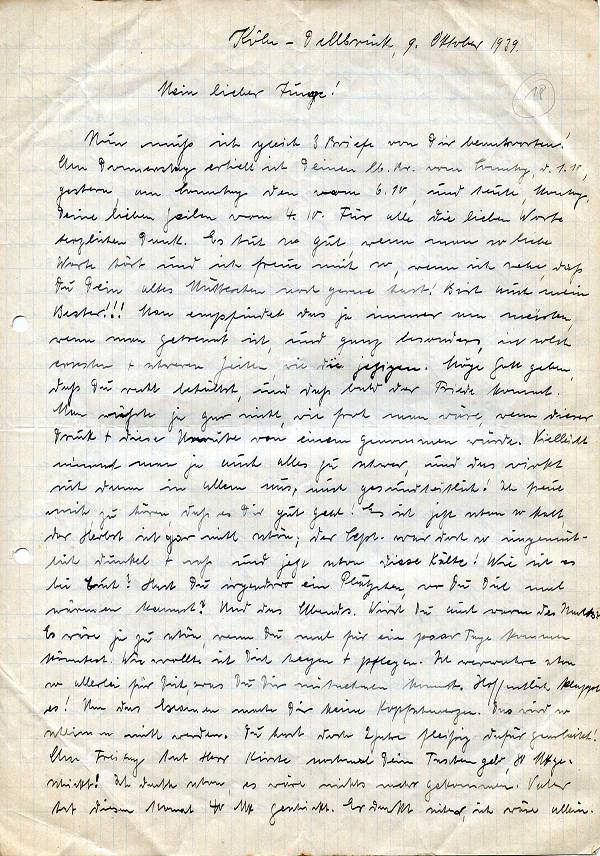 Köln-Dellbrück, 9. Oktober 1939.
18
Mein lieber Junge!
Nun muß ich gleich 3 Briefe von Dir beantworten!
Am Donnerstag erhielt ich Deinen lb. Br. vom Sonntag, d. 1.10,
gestern am Sonntag den vom 6.10, und heute, Montag,
Deine lieben Zeilen vom 4.10. Für alle die lieben Worte
herzlichen Dank. Es tut so gut, wenn man so liebe
Worte hört und ich freue mich so, wenn ich sehe, daß
Du Dein altes Mütterchen noch gerne hast! Bist auch mein
Bester!!! Man empfindet das ja immer am meisten,
wenn man getrennt ist, und ganz besonders, in solch
ernsten + schweren Zeiten, wie die jetzigen. Möge Gott geben,
daß Du recht behältst, und daß bald der Friede kommt.
Man wüßte ja gar nicht, wie froh man wäre, wenn dieser
Druck + diese Unruhe von einem genommen würde. Vielleicht
nimmt man ja auch alles zu schwer, und das wirkt
sich dann in allem aus, auch gesundheitlich! Ich freue
mich zu hören, daß es Dir gut geht! Es ist jetzt schon so kalt
der Herbst ist gar nicht schön; der Sept. war doch so ungemüt-
lich dunkel + naß und jetzt schon diese Kälte! Wie ist es
bei Euch? Hast Du irgendwo ein Plätzchen, wo Du Dich mal
wärmen kannst? Und des Abends. Wirst Du auch warm des Nachts?
Es wäre ja zu schön, wenn Du mal für ein paar Tage kommen
könntest. Wie wollte ich Dich hegen + pflegen. Ich verwahre schon
so allerlei für Dich, was Du Dir mitnehmen kannst. Hoffentlich klappt
es! Um das Examen mache Dir keine Kopfschmerzen. Das wird so
schlimm nicht werden. Du hast doch 2 Jahre fleißig dafür gearbeitet!
Am Freitag hat Herr nochmal Dein Taschengeld, Mk ge-
schickt! Ich dachte schon, es wäre nichts mehr gekommen. Vater
hat diesen Monat Mk geschickt. Er denkt sicher, ich wäre allein.